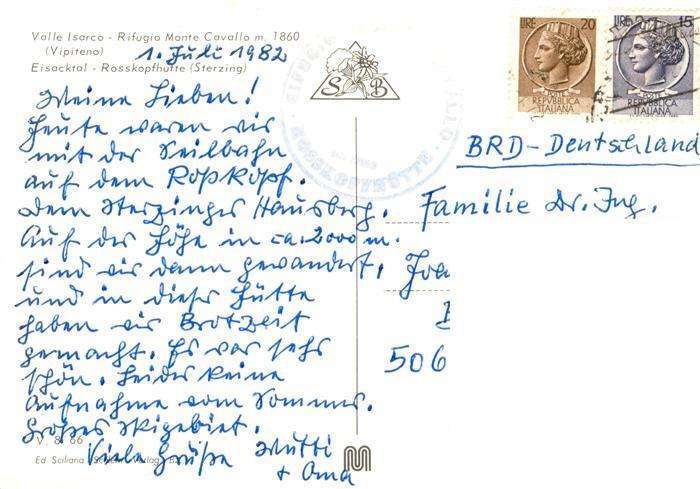 Valle Isarco - Rifugio Monte Cavallo m. 1860
(Vipiteno)
Eisacktal - Rosskopfhütte (Sterzing)
1. Juli 1982
Meine Lieben!
Heute waren wir
mit der Seilbahn
auf dem Roßkopf.
Dem Sterzinger Hausberg.
Auf der Höhe in ca. 2000 m.
sind wir dann gewandert,
und in dieser Hütte
haben wir Brotzeit
gemacht. Es war sehr
schön. Leider keine
Aufnahme vom Sommer.
Großes Skigebiet.
Viele Grüße Mutti
+ Oma
V. 8/66
Ed. Sciliana
S B
LIRE 20
15
POSTE
REPVBBLICA
ITALIANA
POSTE
REPVBBLICA
ITALIANA
BRD-Deutschland
Familie Dr. Ing.
Joa
506